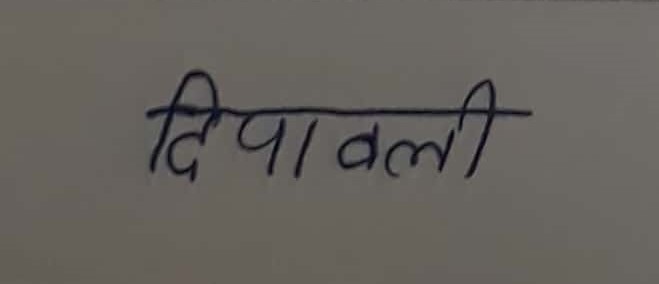 दिपावली